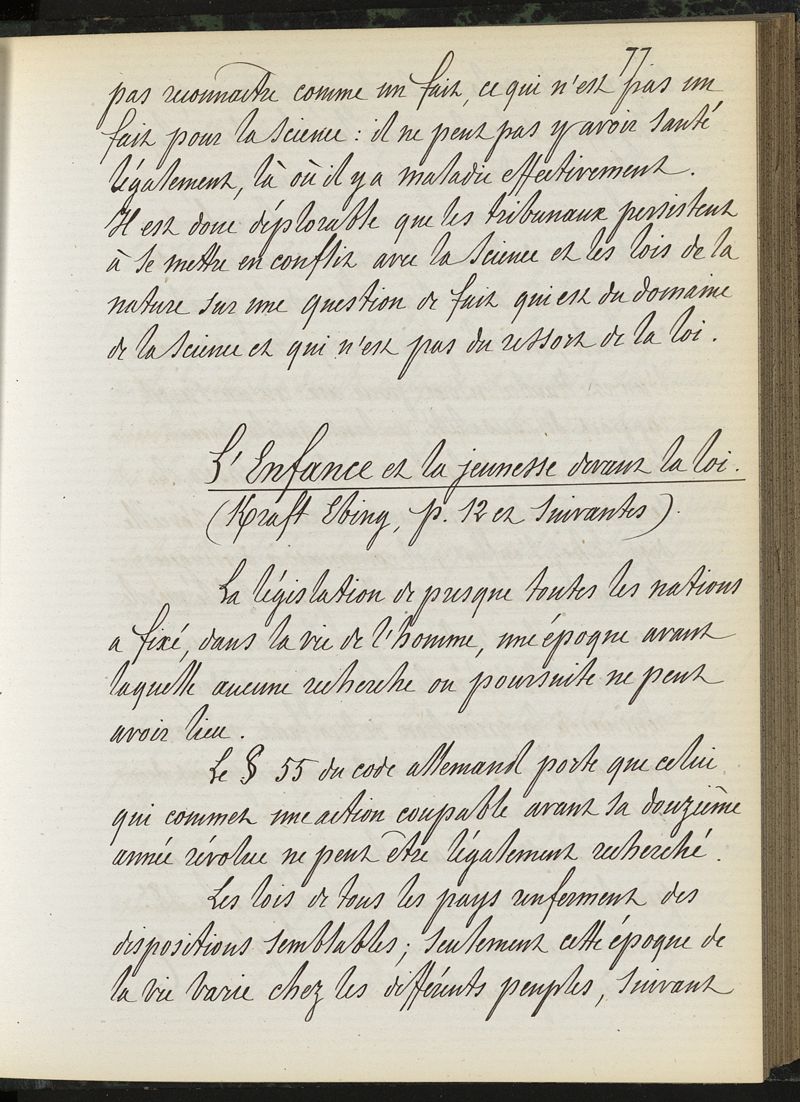 77
pas reconnaître comme un fait, ce qui n'est pas un
fait pour la science : il ne peut pas y avoir santé
légalement, là où il y a maladie effectivement.
Il est donc déplorable que les tribunaux persistent
à se mettre en conflit avec la science et les lois de la
nature sur une question de fait qui est du domaine
de la science et qui n'est pas du ressort de la loi.
L'Enfance et la jeunesse devant la loi.
(Kraft Ebing, p. 12 et suivantes).
La législation de presque toutes les nations
a fixé, dans la vie de l'homme, une époque avant
laquelle aucune recherche ou poursuite ne peut
avoir lieu.
Le § 55 du code allemand porte que celui
qui commet une action coupable avant sa douzième
année révolue ne peut être légalement recherché.
Les lois de tous les pays renferment des
dispositions semblables ; seulement cette époque de
la vie varie chez les différents peuples, suivant